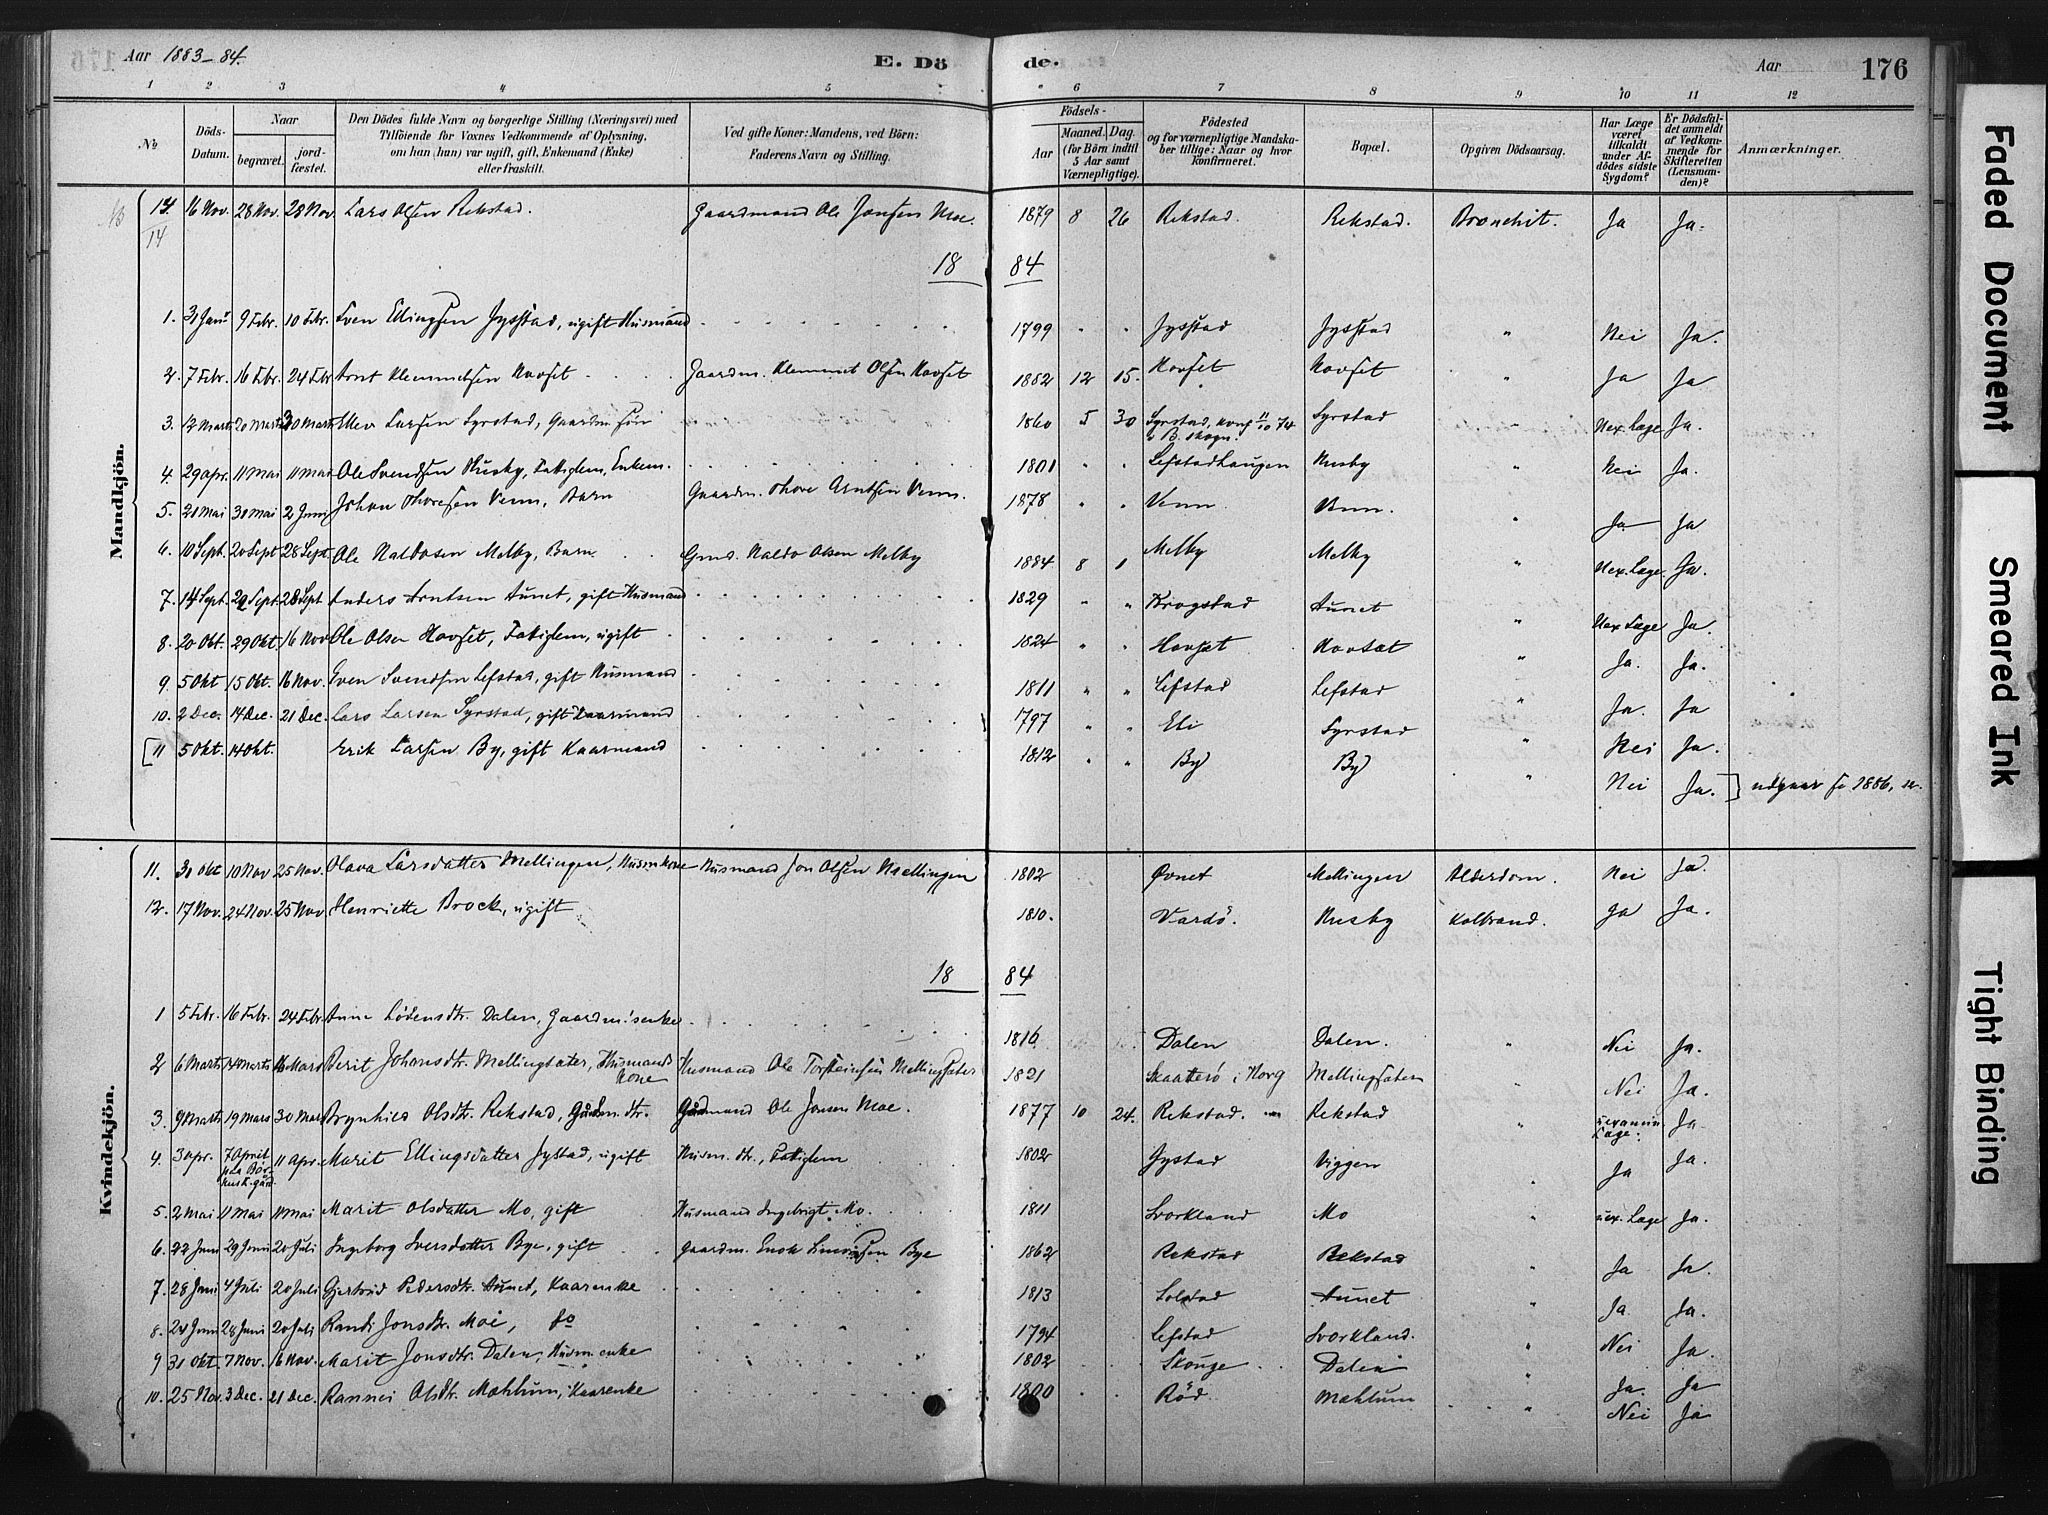 Aar 1883-84.
E. Dö
de.
Aar
176
1 2 3 4 5 6 7 8 9 10 11 12
№
Döds-Datum.
Naar
begravet.
jordfæstet.
Den Dödes fulde Navn og borgerlige Stilling (Næringsvei) med
Tilföiende for Voxnes Vedkommende af Oplysning,
om han (hun) var ugift, gift, Enkemand (Enke)
eller fraskilt.
Ved gifte Koner: Mandens, ved Börn:
Faderens Navn og Stilling.
Födsels-
Aar
Maaned. Dag.
(for Börn indtil
5 Aar samt
Værnepligtige).
Födested
og for værnepligtige Mandska-
ber tillige: Naar og hvor
konfirmeret.
Bopæl.
Opgiven Dödsaarsag.
Har Læge
været
tilkaldt
under Af-
dödes sidste
Sygdom?
Er Dödsfal-
det anmeldt
af Vedkom-
mende for
Skifteretten
(Lensman-
den)?
Anmærkninger.
Mandkjön.
14. 16 Nov. 28 Nov. 28 Nov. Lars Olsen Rekstad. Gaardmand Ole Jonsen Moe. 1879 8 26 Rekstad. Rekstad. Bronchit. Ja Ja.
14
18 84
1. 31 Jan 9 Febr. 10 Febr. Sven Ellingsen Jysstad, ugift Husmand 1799 " " Jysstad Jysstad " Nei Ja.
2. 7 Febr. 16 Febr. 24 Febr Arnt Klemmetsen Hovset Gaardm. Klemmet Olsen Hovset 1882 12 15. Hovset Hovset " Ja Ja
3. 12 Marts 20 Marts 30 Marts Larsen Syrstad, Gaardm. søn 1860 5 30 Syrstad, konf 11/10 74 Syrstad " Uex. Læge Ja.
i B. skogn.
4. 29 Apr. 11 Mai 11 Mai Ole Svendsen Husby, Fattiglem, Enkem. 1801 " " Lefstadhaugen Husby " Nei Ja.
5. 21 Mai 30 Mai 2 Juni Johan Thoresen Venn, Barn Gaardm. Thore Arntsen Venn. 1878 " " Venn Venn. " Ja Ja
6. 10 Sept. 20 Sept 28 Sept. Ole Haldosen Melby, Barn Gmd. Haldo Olsen Melby 1884 8 1 Melby Melby " Uex. Læge. Ja.
7. 14 Sept. 22 Sept 28 Sept Anders Arntsen Aunet, gift Husmand 1829 " " Krogstad Aunet " Uex Læge Ja.
8. 20 Okt. 29 Okt. 16 Nov Ole Olsen Hovset, Fattiglem, ugift 1824 " " Hovset Hovsæt " Ja. Ja.
9. 5 Okt 15 Okt. 16 Nov. Sven Svendsen Lefstad, gift Husmand 1811 " " Lefstad Lefstad " Ja. Ja
10. 2 Dec. 14 Dec. 21 Dec. Lars Larsen Syrstad, gift Kaarmand 1797 " " Eli Syrstad " Nei Ja.
[11 5 Okt. 14 Okt. Erik Larsen By, gift Kaarmand 1812 " " By By " Nei Ja. ] udgaar 1886,
Kvindekjön.
11. 31 Okt 10 Nov 25 Nov. Olava Larsdatter Mellingen, Husm.kone Husmand Jon Olsen Mellingen 1802 Øvnet Mellingen Alderdom. Nei Ja.
12. 17 Nov. 24 Nov. 25 Nov Henriette Brock, ugift 1810. Vardö. Husby Kolbrand. Ja Ja.
18 84
1 5 Febr. 16 Febr. 24 Febr Anne Lødensdtr. Dalen, Gaardm.'s enke 1816 Dalen Dalen. " Nei Ja.
2 6 Marts 14 Marts 16 Mars Berit Johansdtr. Mellingsæter, Husmands Kone Husmand Ole Torsteinsen Mellingsæter 1821 Skaatterø i Horg Mellingsæter " Nei Ja.
3. 9 Marts 19 Mars 30 Mars Brynhild Olsdtr. Rekstad, Gårdm. dtr. Gårdmand Ole Jonsen Moe. 1877 10 24. Rekstad. Rekstad " uexamin. Læge. Ja
4. 3 Apr. 7 April paa Börseskt.gård 11 Apr. Marit Ellingsdatter Jystad, ugift Husm. dtr., Fattiglem 1802 Jystad Viggen " Ja Ja.
5. 2 Mai 11 Mai 11 Mai Marit Olsdatter Mo, gift Husmand Ingebrigt Mo. 1811 Svorkland Mo uex. Læge Ja.
6. 22 Juni 29 Juni 20 Juli Ingeborg Iversdatter Bye, gift Gaardm. Enok Bye 1862 Rekstad Rekstad " Ja Ja.
7. 28 Juni 4 Juli 20 Juli Gjertrud Pedersdtr. Aunet, Kaarenke 1813 Solstad Aunet " Ja Ja.
8. 20 Juni 28 Juni 20 Juli Randi Jonsdtr. Moe, do 1794 Lefstad Svorkland. Nei Ja.
9 31 Okt. 7 Nov. 16 Nov. Marit Jonsdtr. Dalen, Husm. enke 1802 Skouge Dalen " Ja. Ja
10. 25 Nov. 3 Dec. 21 Dec. Rannei Olsdtr. Mæhlum, Kaarenke 1800 Röd Mæhlum " Nei Ja
Faded Document
Smeared Ink
Tight Binding